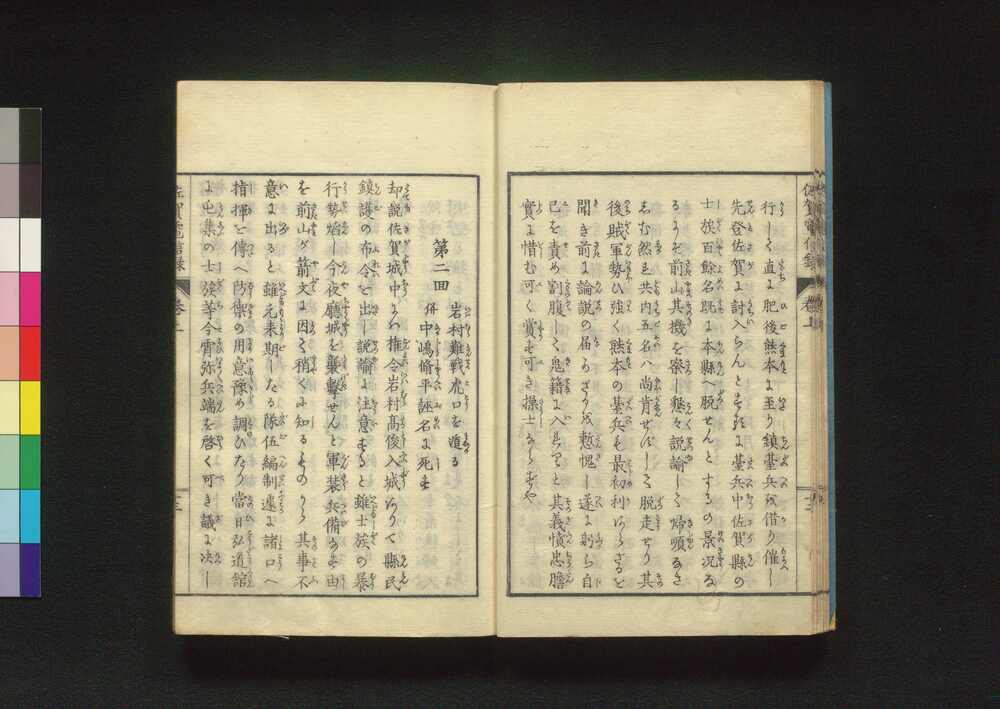 佐賀電信録
行して直に肥後熊本に至り鎮䑓兵を借り催し
先登佐賀に討入らんとするに䑓兵中佐賀縣の
士族百餘名既に本縣へ脱せんとするの景况な
るより前山其機を察し懇々説諭して帰順なさ
しむ然る共内五名ハ尚肯ぜずして脱走せり其
後賊軍勢ひ強く熊本の䑓兵も最初利あらざるを
聞き前に論説の届かざるを慙愧し遂に躬ら自
己を責め割腹して鬼籍に入ると其義憤忠膽
實に惜む可く賞す可き操士ならずや
第二回
岩村難戦虎口を遁る
併中嶋脩平誣名に死す
却説佐賀城中にハ権令岩村髙俊入城ありて縣民
鎮護の布令を出し説諭に注意すると雖士族の暴
行勢焰し今夜廳城を襲撃せんと軍装兵備なす由
を前山が箭文に因て稍くに知るものゝから其事不
意に出ると雖元来期したる隊伍編制速に諸口へ
指揮を傳へ防禦の用意豫め調ひたり當日弘道舘
に屯集の士族等今宵弥兵端を啓く可き議に决し
佐賀電信録
巻上